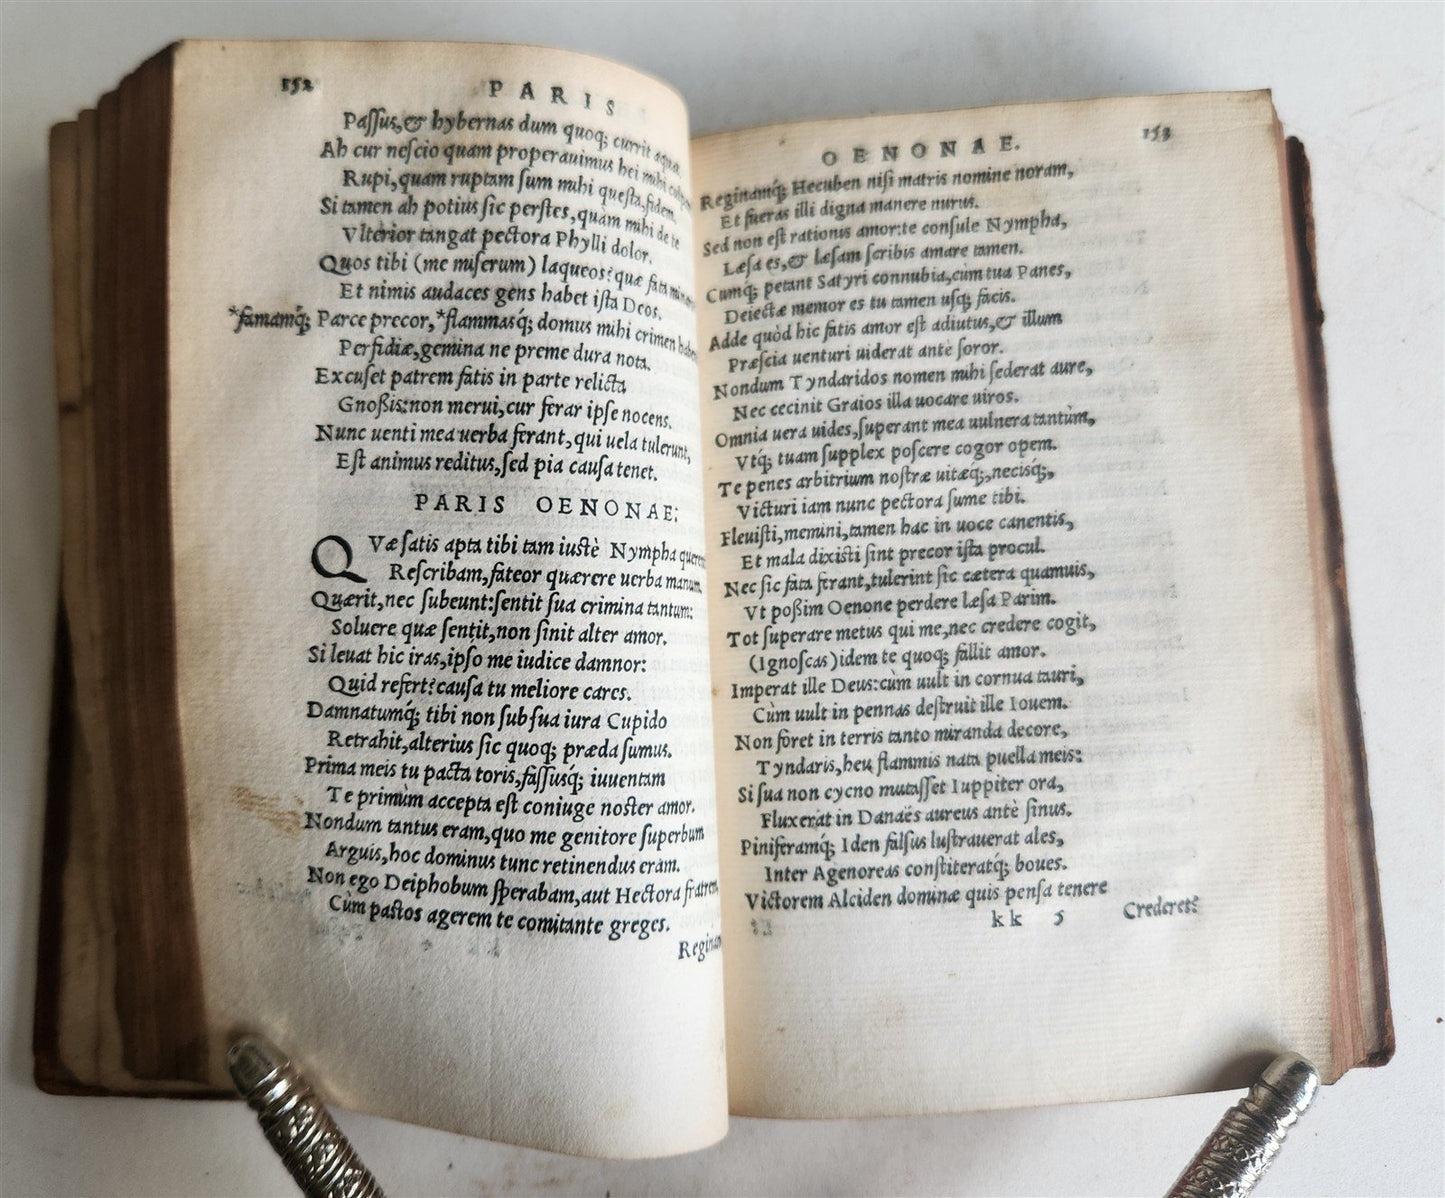 152
PARIS
Paſſus,& hybernas dum quoq; currit aqua.
Ah cur neſcio quam properauimus hei mihi
Rupi,quam ruptam ſum mihi queſta,fidem.
Si tamen ah potius ſic perſtes,quam mihi de te
Vlterior tangat pectora Phylli dolor.
Quos tibi (me miſerum) laqueos? quæ fata
Et nimis audaces gens habet iſta Deos.
*famamq́; Parce precor,*flammasq́; domus mihi crimen
Perfidiæ,gemina ne preme dura nota.
Excuſet patrem fatis in parte relicta
Gnoßis:non merui,cur ferar ipſe nocens.
Nunc uenti mea uerba ferant,qui uela tulerunt,
Eſt animus reditus,ſed pia cauſa tenet.
PARIS OENONAE:
QVæ ſatis apta tibi tam iuſtè Nympha
Reſcribam,fateor quærere uerba manum.
Quærit,nec ſubeunt:ſentit ſua crimina tantum:
Soluere quæ ſentit,non ſinit alter amor.
Si leuat hic iras,ipſo me iudice damnor:
Quid refert? cauſa tu meliore cares.
Damnatumq́; tibi non ſub ſua iura Cupido
Retrahit,alterius ſic quoq; præda ſumus.
Prima meis tu pacta toris,faſſusq́; iuuentam
Te primùm accepta eſt coniuge noſter amor.
Nondum tantus eram,quo me genitore ſuperbum
Arguis,hoc dominus tunc retinendus eram.
Non ego Deiphobum ſperabam,aut Hectora fratrem,
Cùm paſtos agerem te comitante greges.
OENONAE.
153
Reginamq́; Hecuben niſi matris nomine noram,
Et fueras illi digna manere nurus.
Sed non eſt rationis amor:te conſule Nympha,
Læſa es,& læſam ſcribis amare tamen.
Cumq́; petant Satyri connubia,cùm tua Panes,
Deiectæ memor es tu tamen uſq; facis.
Adde quòd hic fatis amor eſt adiutus,& illum
Præſcia uenturi uiderat antè ſoror.
Nondum Tyndaridos nomen mihi ſederat aure,
Nec cecinit Graios illa uocare uiros.
Omnia uera uides,ſuperant mea uulnera tantùm,
Vtq́; tuam ſupplex poſcere cogor opem.
Te penes arbitrium noſtræ uitæq́;,necisq́;,
Victuri iam nunc pectora ſume tibi.
Fleuiſti,memini,tamen hac in uoce canentis,
Et mala dixiſti ſint precor iſta procul.
Nec ſic fata ferant,tulerint ſic cætera quamuis,
Vt poßim Oenone perdere læſa Parim.
Tot ſuperare metus qui me,nec credere cogit,
(Ignoſcas)idem te quoq; fallit amor.
Imperat ille Deus:cùm uult in cornua tauri,
Cùm uult in pennas deſtruit ille Iouem.
Non foret in terris tanto miranda decore,
Tyndaris,heu flammis nata puella meis:
Si ſua non cycno mutaſſet Iuppiter ora,
Fluxerat in Danaës aureus antè ſinus.
Piniferamq́; Iden falſus luſtrauerat ales,
Inter Agenoreas conſtiteratq́; boues.
Victorem Alciden dominæ quis penſa tenere
kk 5 Crederet?